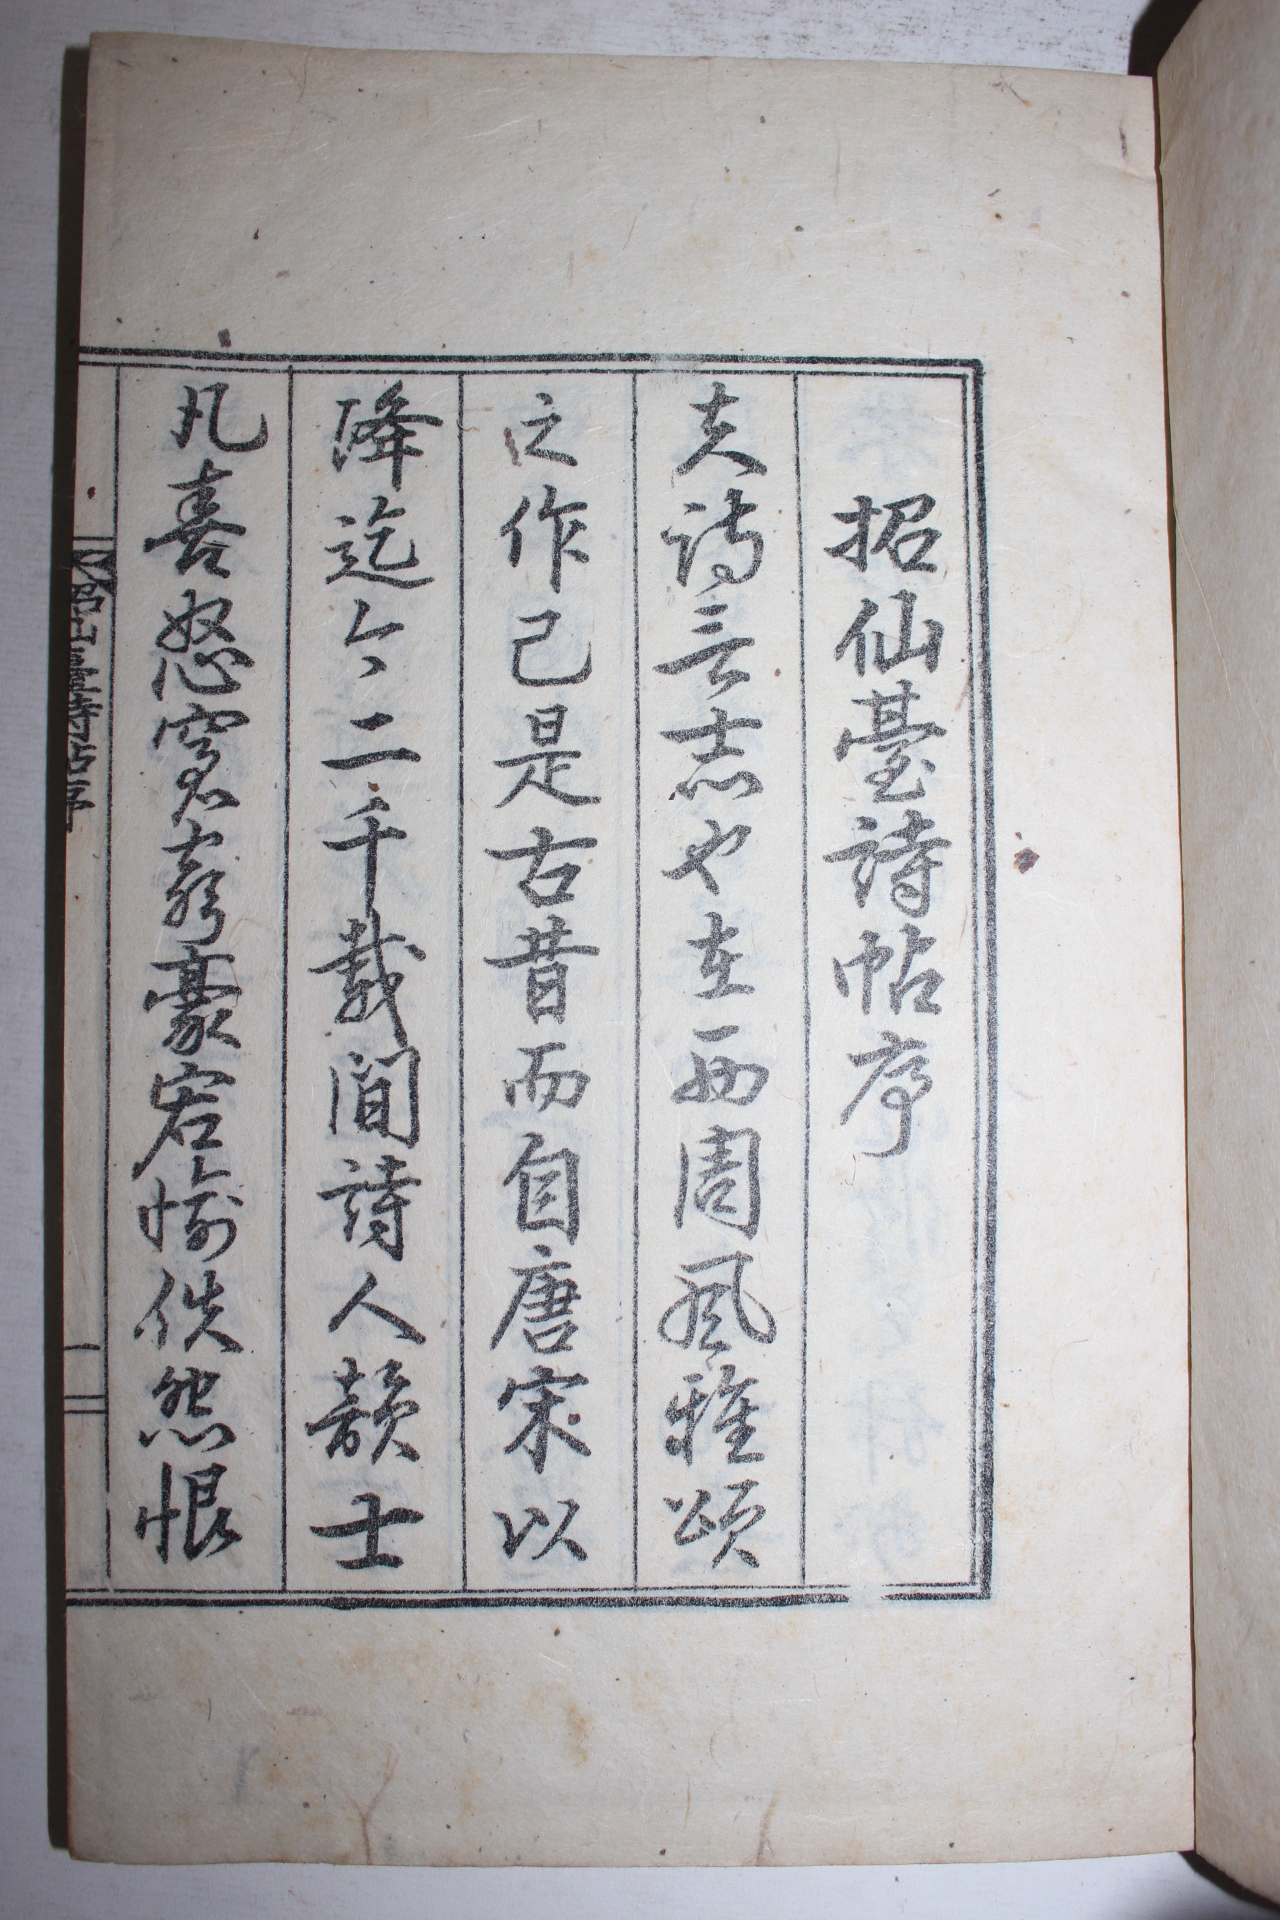 招仙臺詩帖序
夫詩言志也在西周風雅頌
之作已是古昔而自唐宋以
降迄今二千載間詩人韻士
凡喜怒窮豪宕愉佚怨恨